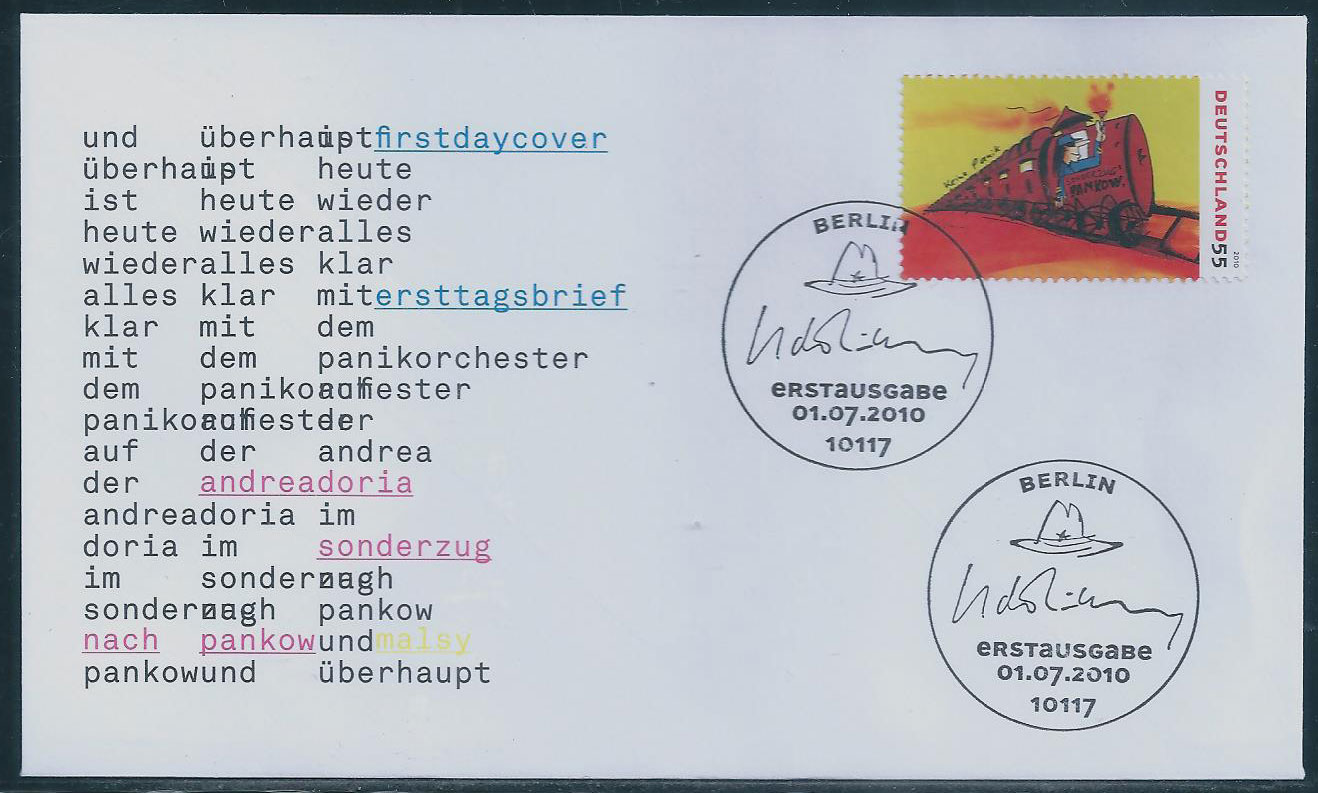 und überhaupt ist firstdaycover
überhaupt ist heute
ist heute wieder
heute wieder alles
wieder alles klar
alles klar mit ersttagsbrief
klar mit dem
mit dem panikorchester
dem panikorchester auf
panikorchester auf der
auf der andrea
der andrea doria
andrea doria im
doria im sonderzug
im sonderzug nach
sonderzug nach pankow
nach pankow und malsy
pankow und überhaupt
Keine Panik
SONDERZUG
PANKOW.
DEUTSCHLAND 55
2010
BERLIN
ERSTAUSGABE
01.07.2010
10117
BERLIN
ERSTAUSGABE
01.07.2010
10117